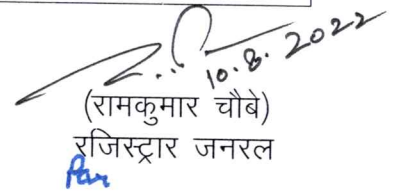 10.8.2022
(रामकुमार चौबे)
रजिस्ट्रार जनरल